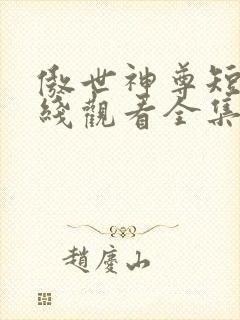 傲世神尊短
綫觀看全集
趙慶山